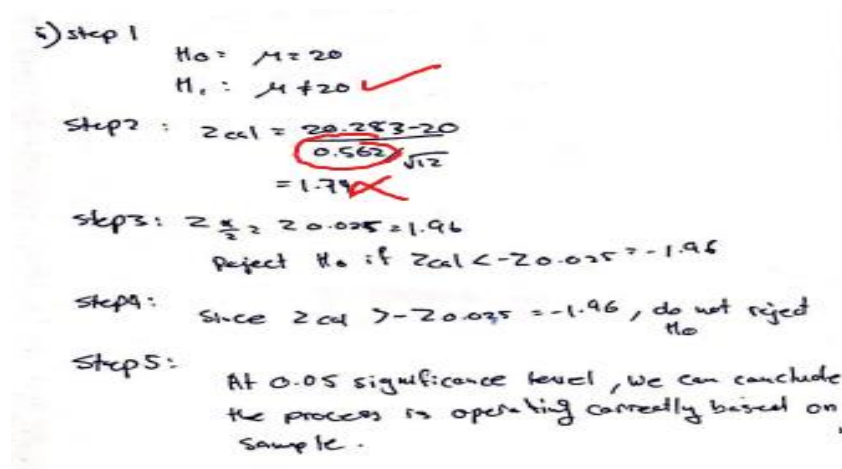 i) step 1
H₀: μ = 20
H₁: μ ≠ 20 ✓
Step2 : Zcal = 20.283-20
0.562/√12
= 1.74
step3: Z α/2 = Z 0.025 = 1.96
Reject H₀ if Zcal < -Z0.025 = -1.96
step4:
Since Zcal > -Z0.025 = -1.96, do not reject
H₀
Step5:
At 0.05 significance level, we can conclude
the process is operating correctly based on
sample.